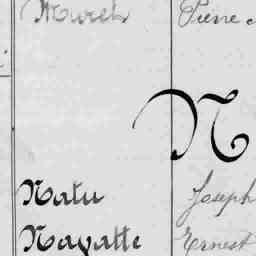 Muret Pierre
N
Natu Joseph
Nayatte Ernest